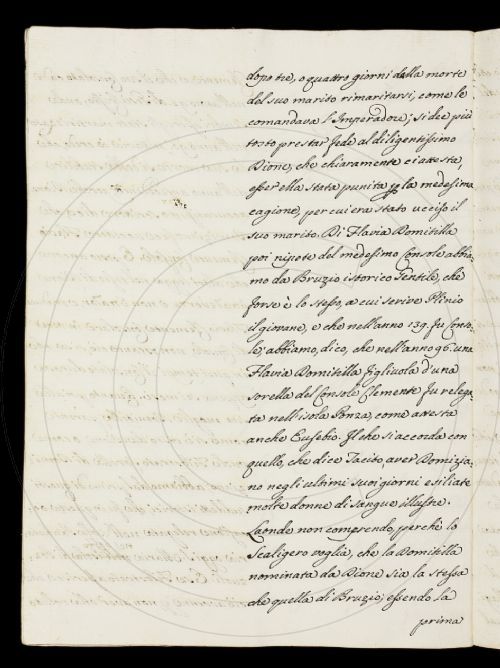 dopo tre, o quattro giorni dalla morte
del suo marito rimaritarsi, come le
comandava l'Imperadore; si dee più
tosto prestar fede al diligentissimo
Dione, che chiaramente ci attesta,
esser ella stata punita per la medesima
cagione, per cui era stato ucciso il
suo marito. Di Flavia Domitilla
poi nipote del medesimo Console abbia-
mo da Bruzio istorico Gentile, che
forse è lo stesso, a cui scrive Plinio
il giovane, e che nell'anno 139. fu Conso-
le; abbiamo, dico, che nell'anno 96. una
Flavia Domitilla figlivola d'una
sorella del Console Clemente fu relega-
ta nell'isola Ponza, come attesta
anche Eusebio. Il che si accorda con
quello, che dice Tacito, aver Domizia-
no negli ultimi suoi giorni esiliate
molte donne di sangue illustre.
Laonde non comprendo, perchè lo
Scaligero voglia, che la Domitilla
nominata da Dione sia la stessa
che quella di Bruzio; essendo la
prima